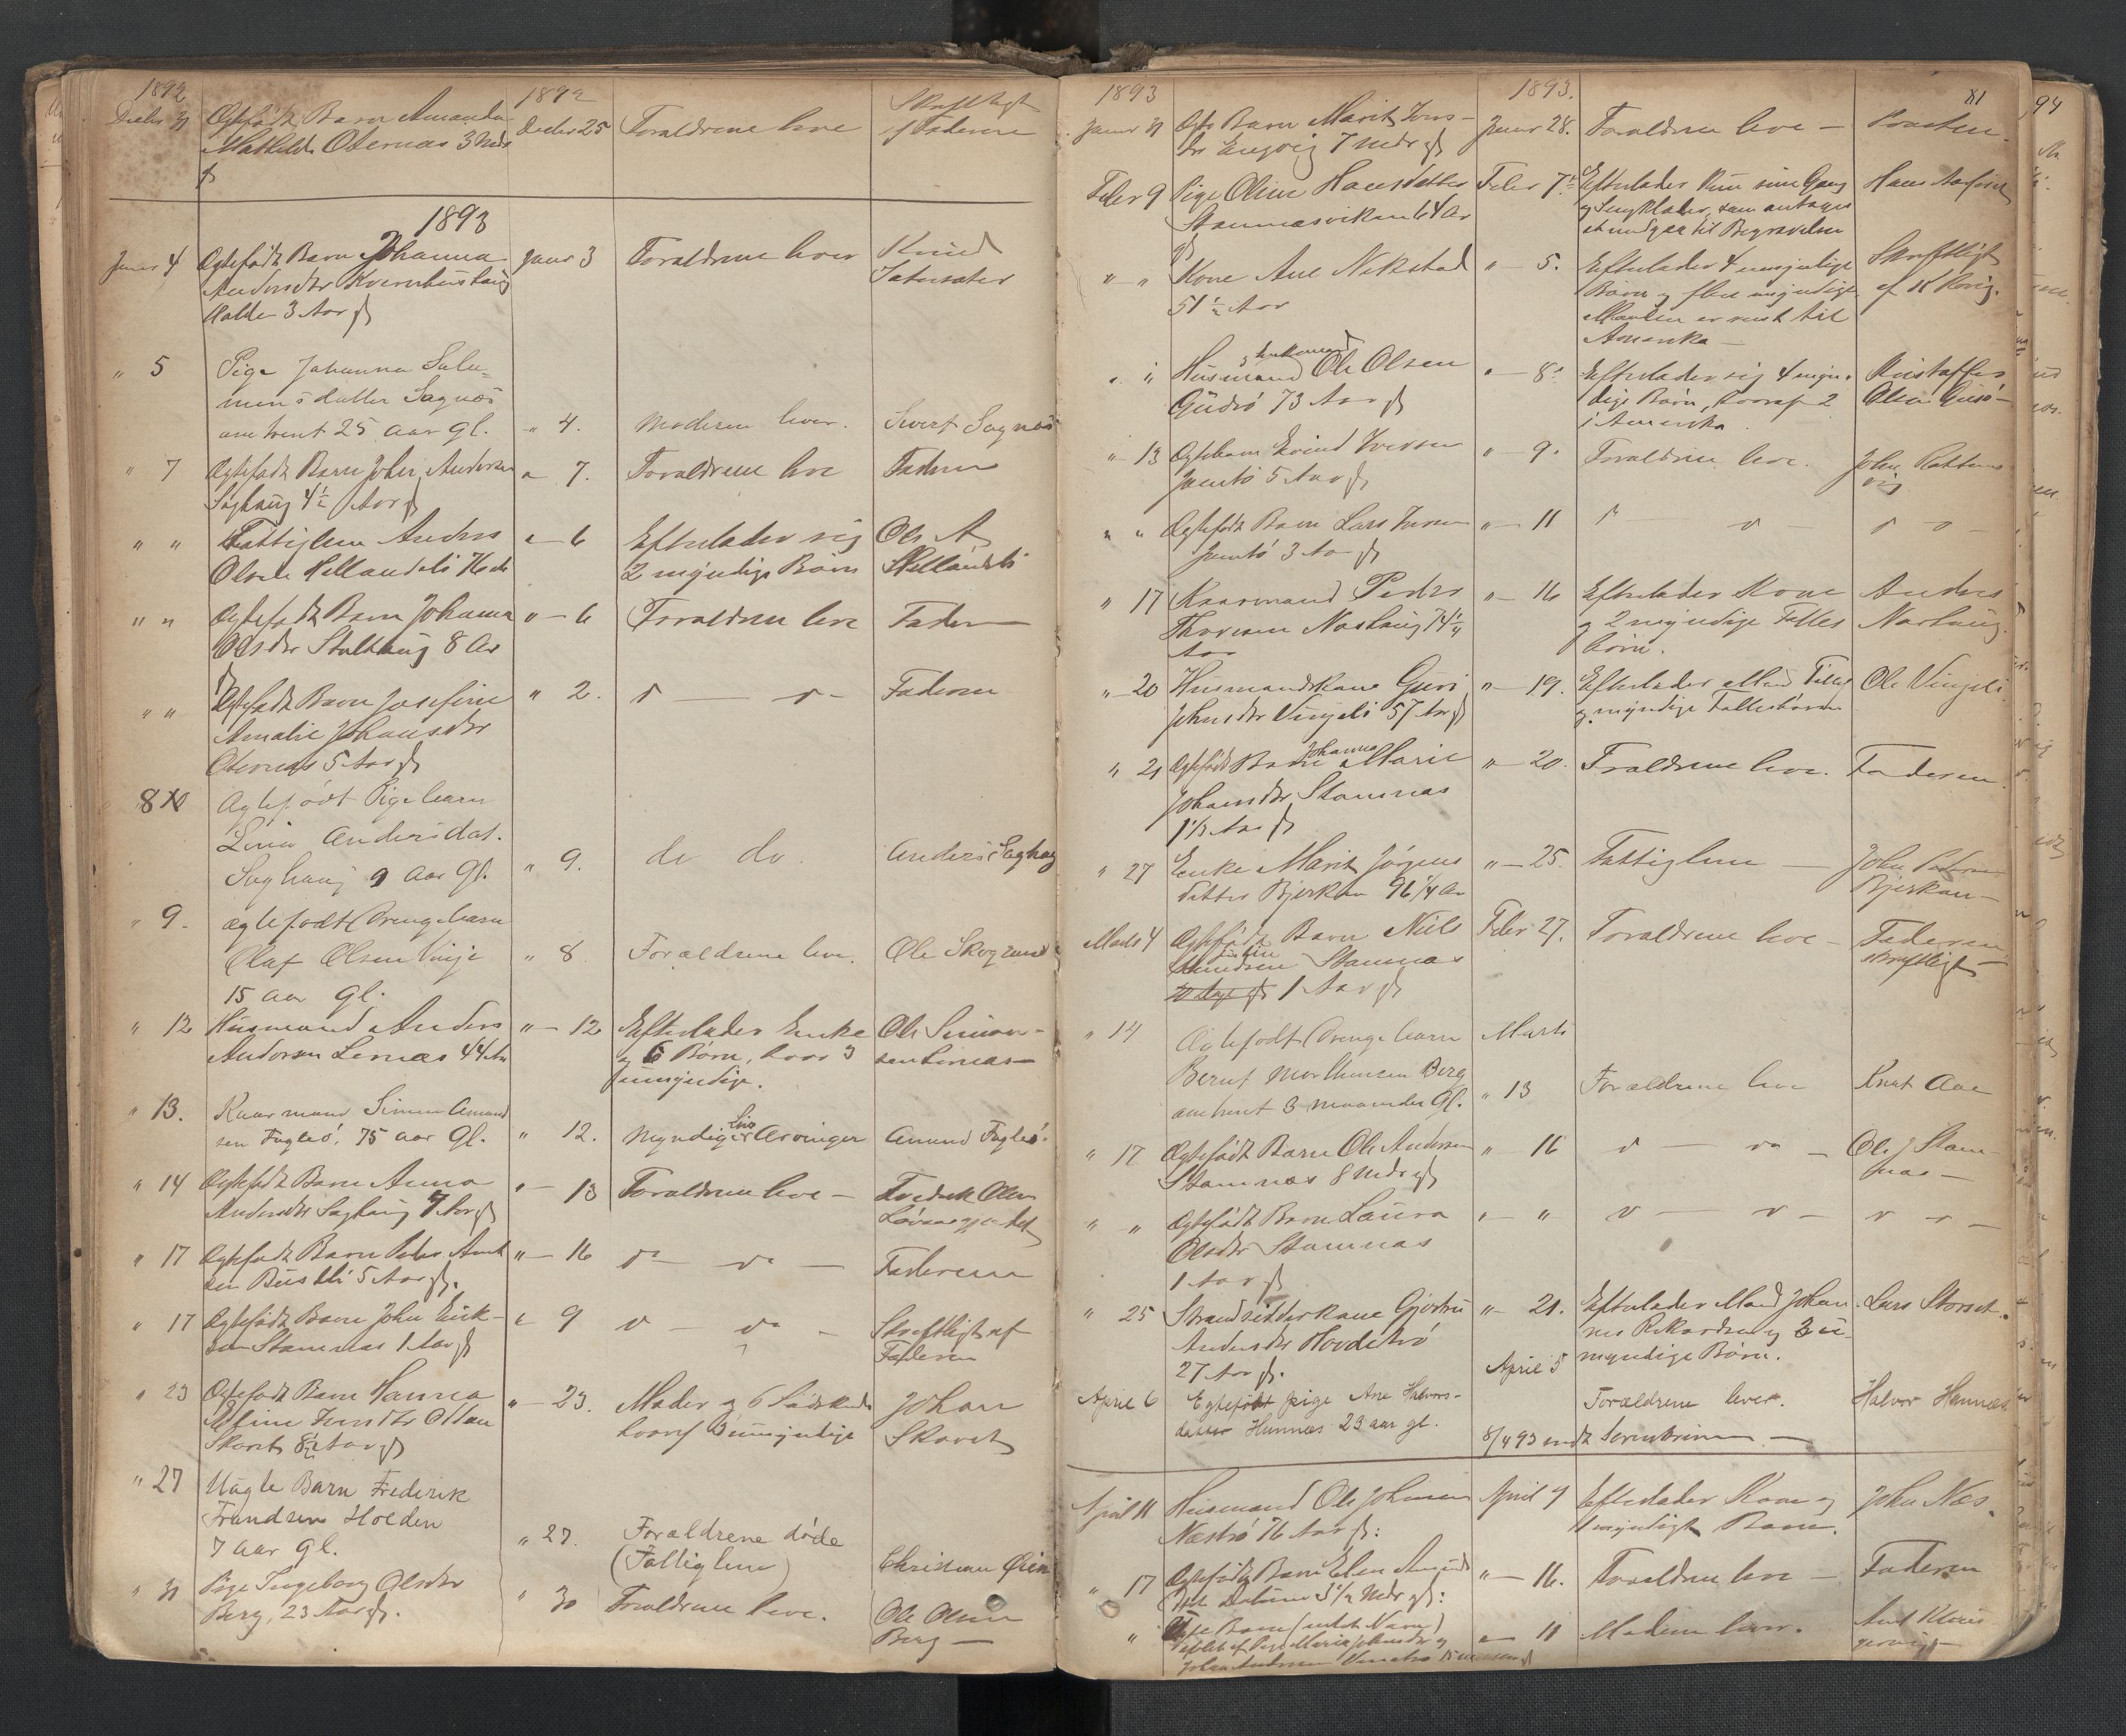 1892
1892
Decbr 31
Ægtefødt Barn Amanda
Mathilde Oternæs 3 Mdr
gl
Decbr 25
Forældrene leve
Skriftligt
f Faderen
1893
Janr 4
Ægtefødt Barn Johanna
Andersdtr Kvernhushaug
Halden 3 Aar gl
Janr 3
Forældrene lever
Knud
" 5
Pige Johanna Salo=
monsdatter Sagnæs
omtrent 25 aar gl.
" 4.
Moderen lever.
Sivert Sagnæs
" 7
Ægtefødt Barn John Andersen
Saghaug 4½ Aar gl
" 7.
Forældrene leve
Faderen
" "
Fattiglem Anders
Olsen Hellandsli 76 Ar
" 6
Efterlader sig
2 myndige Børn
Ole A
Hellandsli
" "
Ægtefødt Barn Johanna
Olsdtr Stolthaug 8 Ar
gl
" – 6
Forældrene leve
Faderen
" "
Ægtefødt Barn Josefine
Amalie Johansdtr
Oternæs 5 Aar gl
" 2.
d — d –
Faderen
8
Ægtefødt Pigebarn
Lina Andersdat.
Saghaug 9 Aar gl.
" 9.
do do.
Anders Saghaug
" 9.
ægtefødt Drengebarn
Olaf Olsen Vinje
15 aar gl.
" 8
Forældrene leve.
Ole Skogrand
" 12
Husmand Anders
Andersen Lernæs 44 Ar
" – 12
Efterlader Enke
og 6 Børn, hvor 3
umyndige.
Ole Simon-
sen Lernæs
" 13.
Kaarmand Simon Amund
sen Fuglsø. 75 aar gl.
" 12.
Myndige Livsarvinger
Amund Fuglsø.
" 14
Ægtefødt Barn Anna
Andersdtr Saghaug 7 Aar gl
" – 13
Forældrene leve –
Fredrik Olsen
" 17
Ægtefødt Barn Peder Arnt
sen Busli 5 Aar gl.
" – 16
do – do —
Faderen
" 17
Ægtefødt Barn John Erik-
sen Stamnæs 1 Aar gl
" 9
d — do –
Skriftligt af
Faderen
" 23
Ægtefødt Barn Hanna
Oline Jensdtr Oldan
Skaret 8½ Aar gl
" – 23.
Moder og 6 Sødskende
hvoraf 3 umyndige
Johan
Skaret
" 27
Uægte Barn Frederik
Trondsen Holden
7 aar gl.
" 27.
Forældrene døde
(Fattiglem)
Christian Øien
" 31
Pige Ingeborg Olsdtr
Berg, 23 Aar gl.
" 30
Forældrene leve.
Ole Olsen
Berg —
1893
1893.
81
Janr 31
Ægte Barn Marit Jens-
dtr Engvig 7 Mdr gl
Janr 28.
Forældrene leve –
Præsten
Febr 9
Pige Oline Hansdatter
Stamnæsvikan 64 Ar
gl
Febr 7.
Efterlader kun sine Gang
og Sengklæder, som antages
at medgaa til Begravelsen
Hans
" "
Kone Ane Nekstad
51½ Aar
" – 5.
Efterlader 4 umyndige
Børn og flere myndige
Manden er reist til
Amerika —
Skriftligt
af
" "
Husmand og Enkemand Ole Olsen
Gudø 73 Aar gl
" – 8.
Efterlader sig 4 myn-
dige Børn, hvoraf 2
i Amerika
Kristoffer
Olsen
" 13
Ægtebarn Eivind Iversen
Jamtø 5 Aar gl
" – 9.
Forældrene leve.
John
" "
Ægtefødt Barn Lars Iversen
Jamtø 3 Aar gl
" – 11
d d
d d –
" 17
Kaarmand Peder
Thoresen Nashaug 74¼
Aar
" – 16
Efterlader Kone
og 2 myndige Fælles
børn.
Anders
Nashaug.
" 20
Husmandskone Guri
Johnsdtr Vingeli 57 Aar gl
" – 19.
Efterlader Mand
og myndige Fællesbørn
Ole Vingeli.
" 21
Ægtefødt Barn Johanna Marie
Johansdtr Stamnæs
1⅓ Aar gl
" – 20.
Forældrene leve.
Faderen.
" 27
Enke Marit Jørgens
datter Bjerkan 96¼ Ar
" – 25.
Fattiglem —
John
Bjerkan –
Marts 4
Ægtefødt Barn Niels
Stamnæs
1 Aar gl
Febr 27.
Forældrene leve –
Faderen
skriftligt
" 14
Ægtefødt Drengebarn
Bernt Morthensen Berg
omtrent 3 maaneder gl.
Marts
" 13
Forældrene leve
Knut Aae
" 17
Ægtefødt Barn Ole Andersen
Stamnæs 8 Mdr gl
" 16
d — do –
Ole J Stam
næs —
" "
Ægtefødt Barn Laura
Olsdtr Stamnæs
1 Aar gl
" "
d — d –
d d –
" 25
Strandsidderkone Gjertru
Andersdtr Hovdebrø
27 Aar gl.
" – 21.
Efterlader Mand Johan
nes Rikardsen og 3 u-
myndige Børn.
Lars Storset.
April 6
Egtefødt pige Ane Halvors-
datter Hemnæs 23 aar gl.
April 5
Forældrene lever.
Halvor Hemnæs
8/4 93 sendt Sorenskriveren —
April 11
Husmand Ole Johnsen
Næsbrø 76 Aar gl:
April 9
Efterlader Kone og
1 myndigt Barn.
John Næs.
" 17
Ægtefødt Barn Elen Amunds
3½ Mdr gl:
" – 16.
Forældrene leve —
Faderen
"
Uægte Barn (uden Navn)
Pige Maria Johnsdtr og
" 11
Moderen lever.